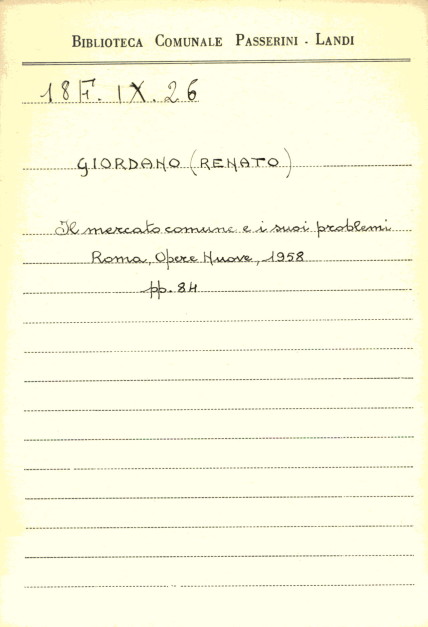 BIBLIOTECA COMUNALE PASSERINI - LANDI
18 F. IX. 26
GIORDANO (RENATO)
Il mercato comune e i suoi problemi
Roma, Opere Nuove, 1958
pp. 84